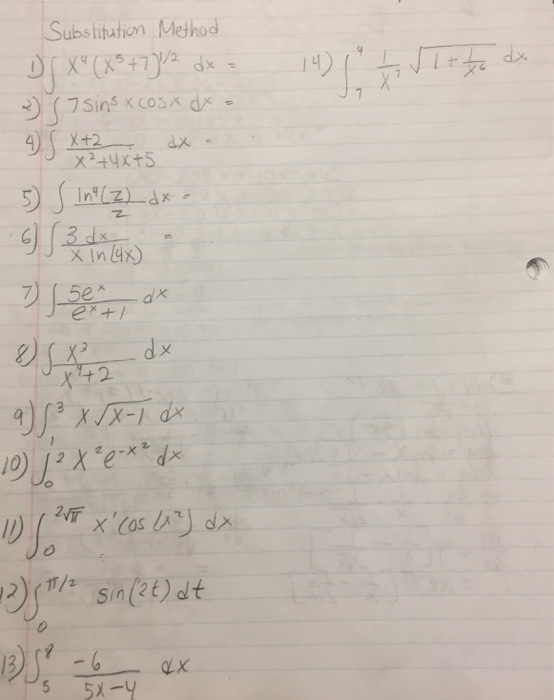 Substitution Method
1) ∫ x⁴(x⁵+7)^1/2 dx =
14) ∫₇⁴ 1/x⁷ √(1 + 1/x⁶) dx
2) ∫ 7 sin⁵ x cos x dx =
4) ∫ (x+2)/(x²+4x+5) dx =
5) ∫ ln⁴(z)/z dx =
6) ∫ 3 dx/(x ln(4x)) =
7) ∫ 5eˣ/(eˣ+1) dx
8) ∫ x³/(x⁴+2) dx
9) ∫₁³ x√(x-1) dx
10) ∫₀² x² e^-x² dx
11) ∫₀^2√π x' cos(x²) dx
12) ∫₀^π/2 sin(2t) dt
13) ∫₅⁸ -6/(5x-4) dx